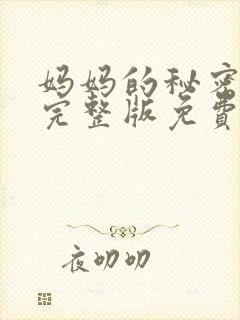 妈妈的秘密
完整版免费
夜叨叨